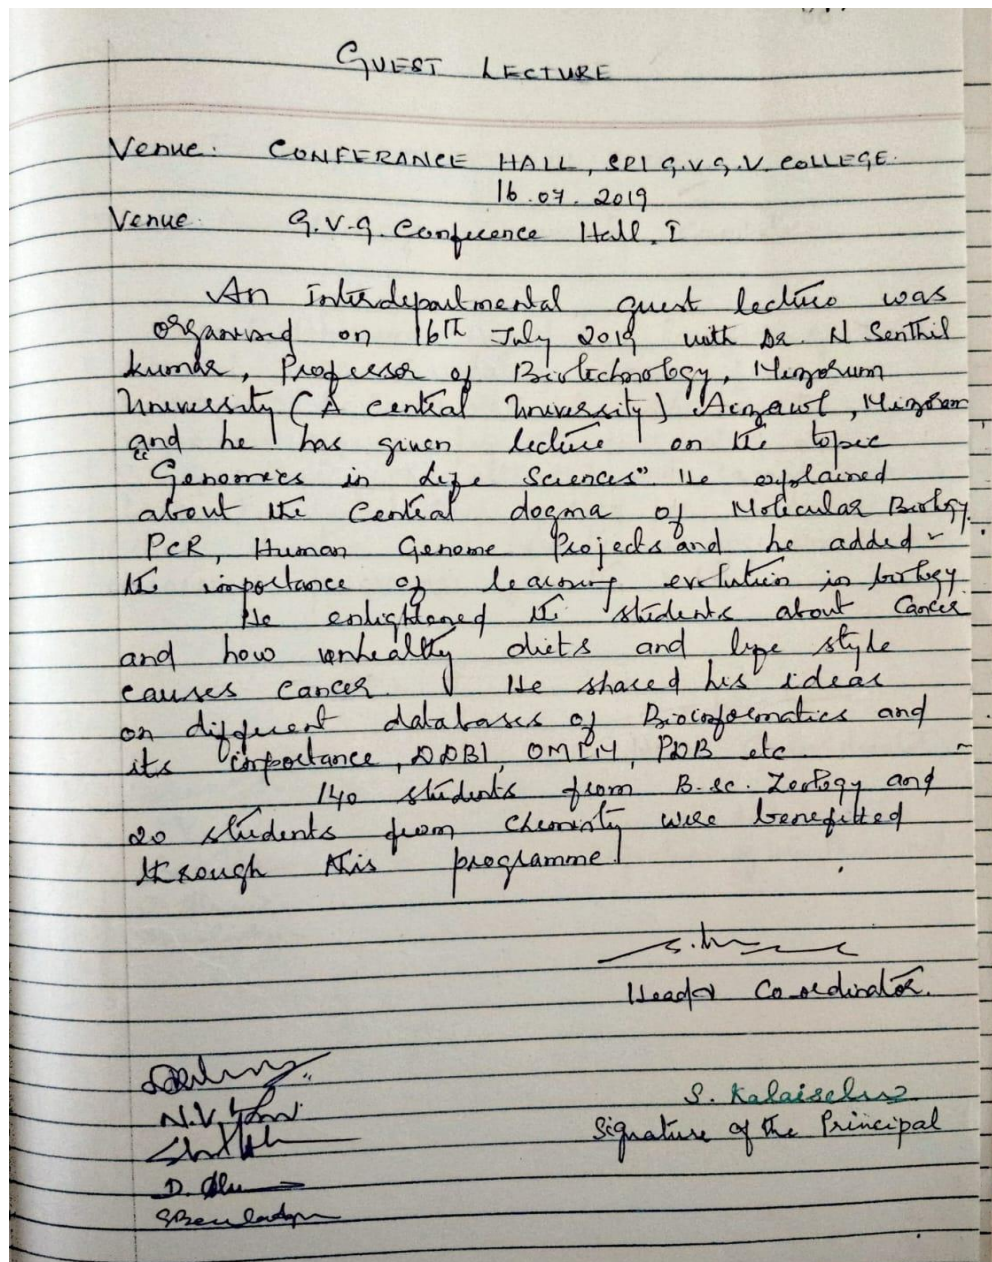 GUEST LECTURE
Venue: CONFERANCE HALL, SRI G.V.G.V. COLLEGE.
16.07.2019
Venue: G.V.G. Conference Hall. I
An Interdepartmental guest lecture was
organised on 16th July 2019 with Dr. N Senthil
kumar, Professor of Biotechnology, Mizorum
University (A central University) Aizawl, Mizoram
and he has given lecture on the topic
"Genomics in Life Sciences". He explained
about the Central dogma of Molecular Biology,
PCR, Human Genome Projects and he added
the importance of learning evolution in biology.
He enlightened the students about Cancer
and how unhealthy diets and life style
causes cancer. He shared his ideas
on different databases of Bioinformatics and
its importance, DDBI, OMIM, PDB etc
140 students from B.sc. Zoology and
20 students from Chemisty were benefitted
through this programme.
Head & Co-ordinator.
S. Kalaiselvi
Signature of the Principal
N.V.
D.